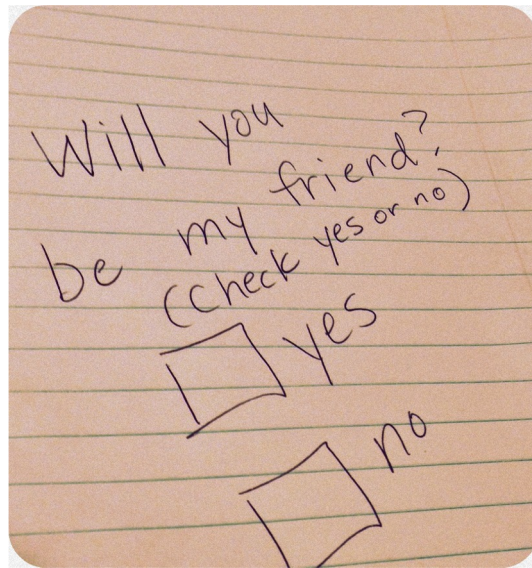 Will you
be my friend?
(Check yes or no)
yes
no